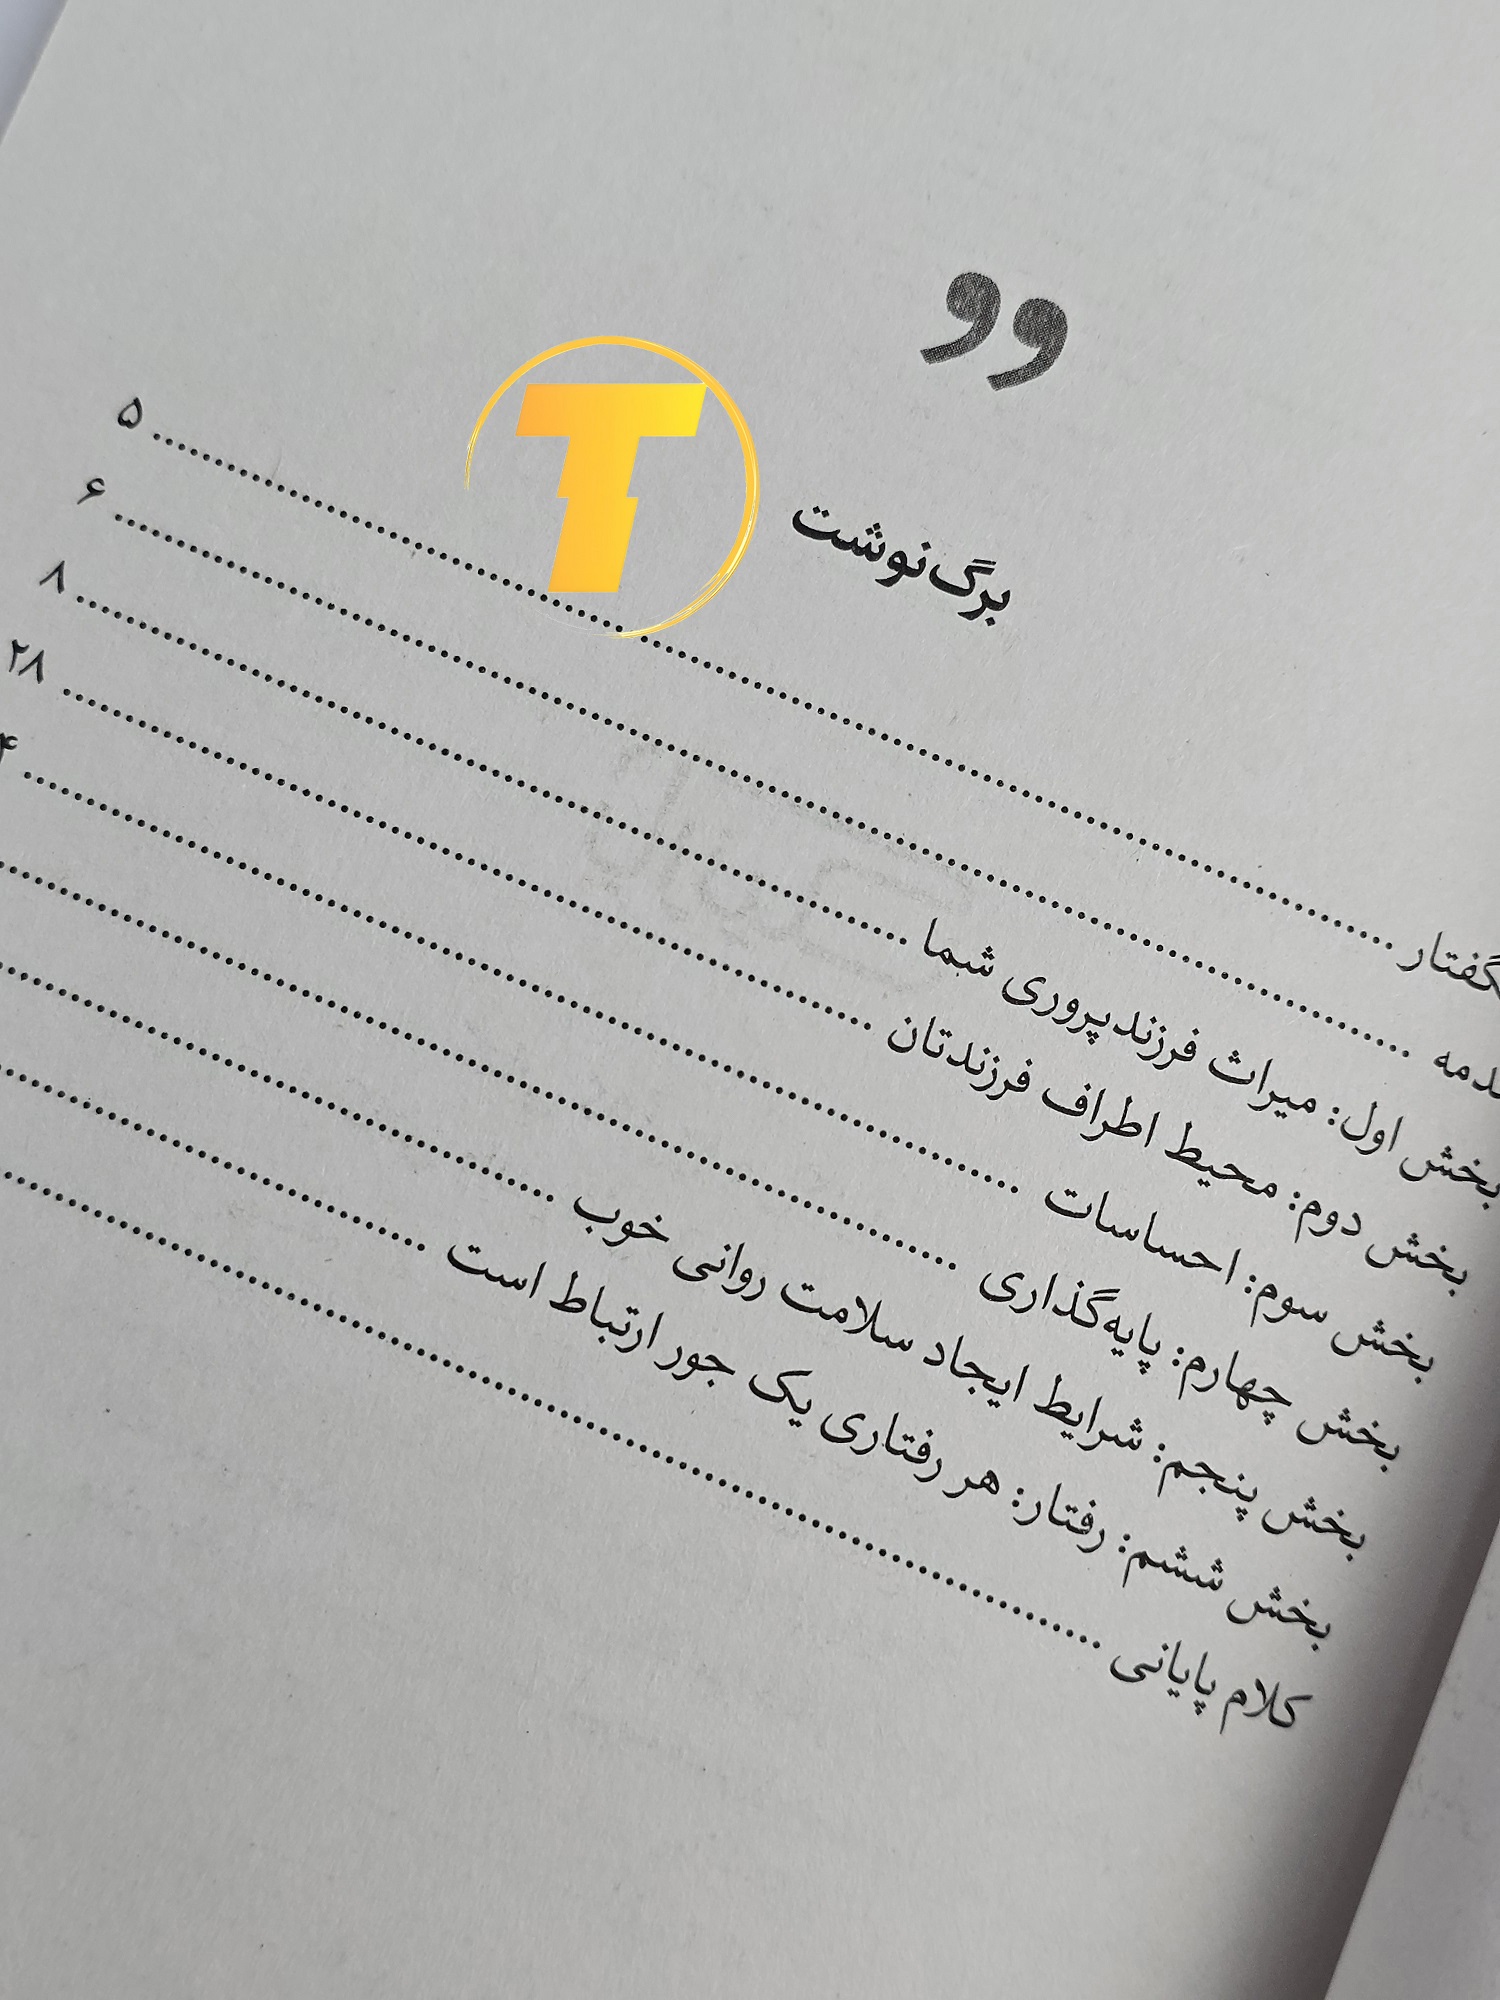 برگ‌نوشت
گفتار ........ ۵
دمه ........ ۶
بخش اول: میراث فرزندپروری شما ........ ۸
بخش دوم: محیط اطراف فرزندتان ........ ۲۸
بخش سوم: احساسات ........
بخش چهارم: پایه‌گذاری ........
بخش پنجم: شرایط ایجاد سلامت روانی خوب ........
بخش ششم: رفتار: هر رفتاری یک جور ارتباط است ........
کلام پایانی ........
T